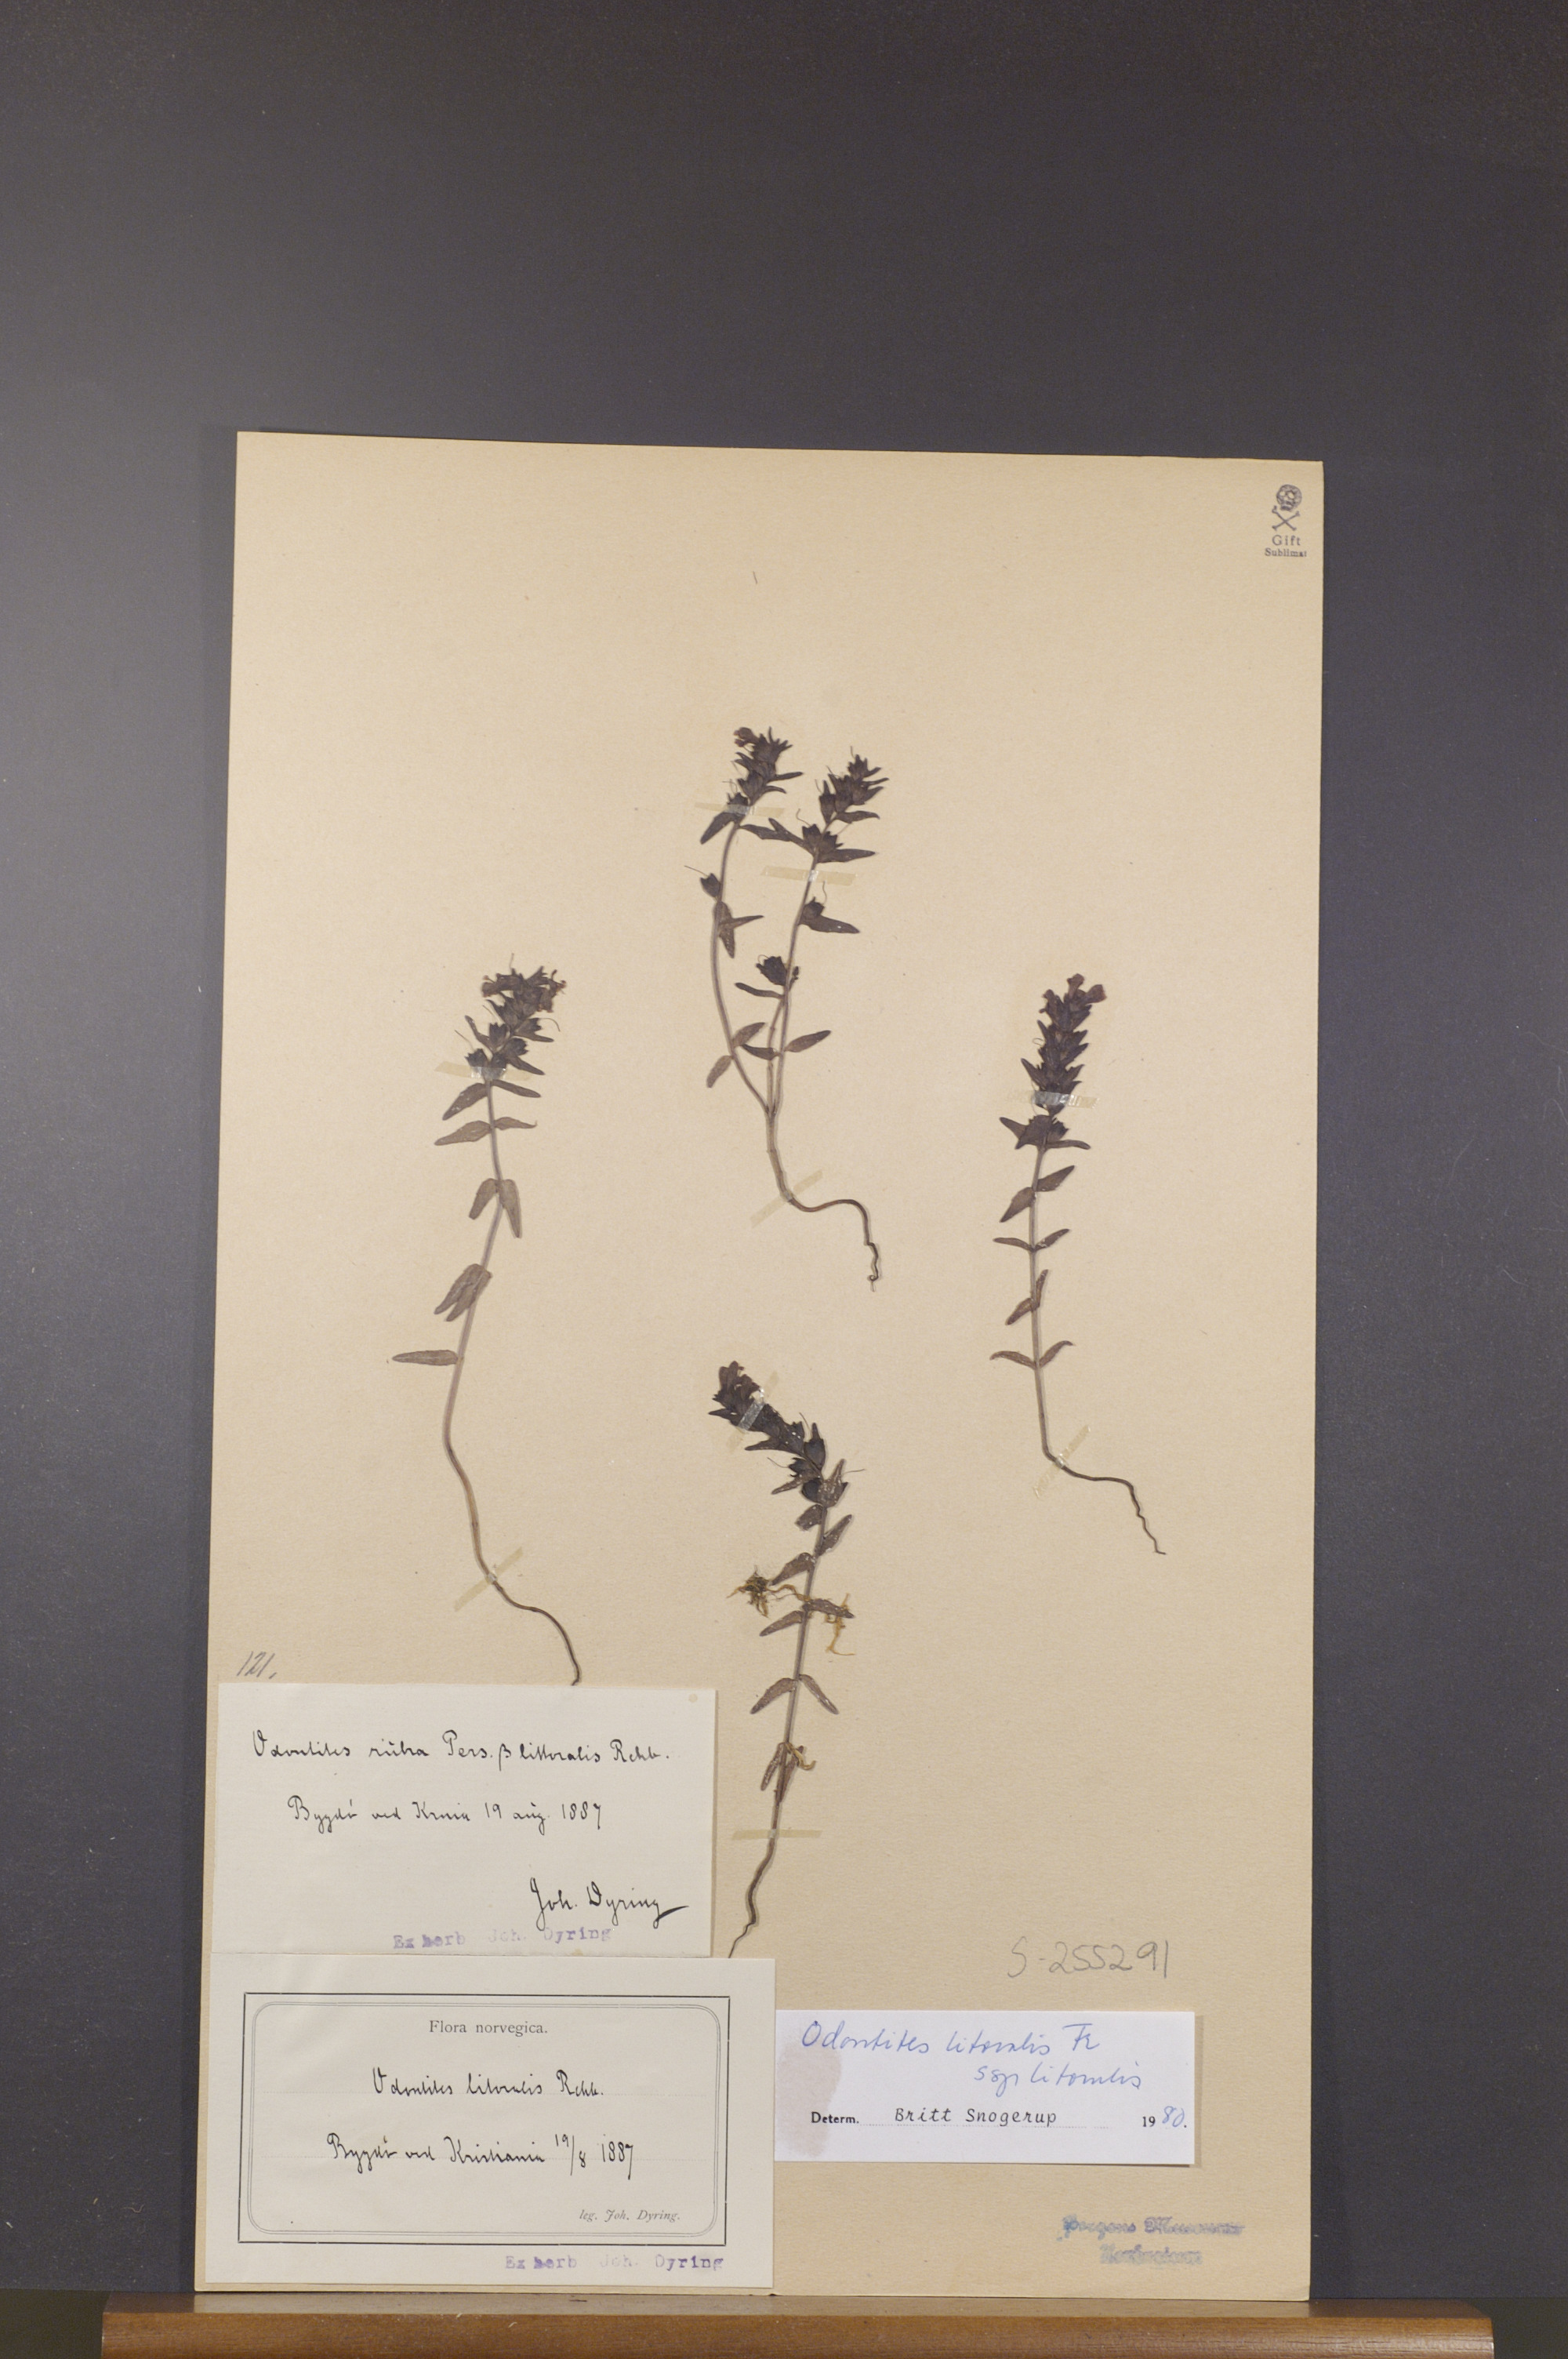 Gift
Sublimat
121.
Odontites rubra Pers. β littoralis Rchb.
Bygdö ved Krnia 19 aug. 1887
Joh. Dyring
Ex herb Joh. Dyring
Flora norvegica.
Odontites litoralis Rchb.
Bygdö ved Kristiania 19/8 1887
leg. Joh. Dyring.
Ex herb Joh. Dyring
S-255291
Odontites litoralis Fr
ssp litoralis
Determ. Britt Snogerup 1980.
Bergens Museums
Herbarium